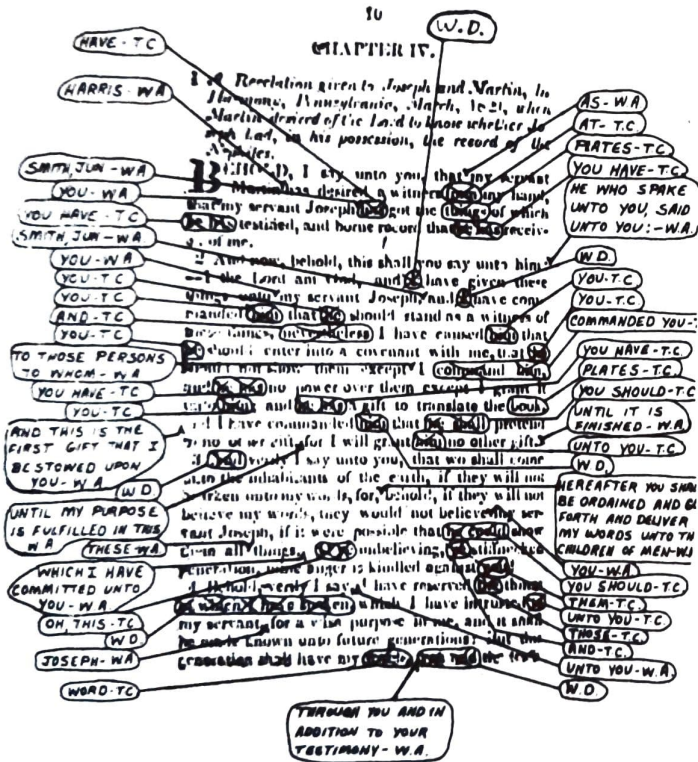 10
W.D.
CHAPTER IV.
HAVE-TC
HARRIS-WA
AS-WA
AT-T.C.
PLATES-T.C.
YOU HAVE-T.C.
HE WHO SPAKE
UNTO YOU, SAID
UNTO YOU:-W.A.
1 A Revelation given to Joseph and Martin, in
Harmony, Pennsylvania, March, 1829, when
Martin desired of the Lord to know whether Jo-
seph had, in his possession, the record of the
Nephites.
BEHOLD, I say unto you, that my servant
Martin has desired a witness from my hand,
that my servant Joseph has got the things of which
he has testified, and borne record that he has receiv-
ed of me.
2 And now, behold, this shall you say unto him:
—I the Lord am God, and I have given these
things unto my servant Joseph, and I have com-
manded him that he should stand as a witness of
these things, nevertheless I have caused him that
he should enter into a covenant with me, that he
should not show them except I command him,
and he has no power over them except I grant it
unto him; and he has a gift to translate the book,
and I have commanded him that he shall pretend
to no other gift, for I will grant him no other gift.
3 And verily I say unto you, that wo shall come
unto the inhabitants of the earth, if they will not
hearken unto my words, for, behold, if they will not
believe my words, they would not believe my ser-
vant Joseph, if it were possible that he could show
them all things. O unbelieving,
generation, mine anger is kindled against
4 Behold, verily I say, I have reserved things
which I have intrusted
my servant, for a wise purpose in me, and it shall
be made known unto future generations: But this
generation shall have my
SMITH, JUN-WA
YOU-WA
YOU HAVE-TC
SMITH, JUN-WA
YOU-WA
YOU-TC
YOU-TC
AND-TC
YOU-TC
TO THOSE PERSONS
TO WHOM-WA
YOU HAVE-TC
YOU-TC
AND THIS IS THE
FIRST GIFT THAT I
BESTOWED UPON
YOU-WA
W D
UNTIL MY PURPOSE
IS FULFILLED IN THIS
WA
THESE-WA
WHICH I HAVE
COMMITTED UNTO
YOU-WA
OH, THIS-TC
W D
JOSEPH-WA
WORD-TC
W.D.
YOU-T.C
YOU-T.C
COMMANDED YOU-
YOU HAVE-T.C.
PLATES-T.C.
YOU SHOULD-T.C
UNTIL IT IS
FINISHED-W.A
UNTO YOU-T.C
W.D.
HEREAFTER YOU SHAL
BE ORDAINED AND G
FORTH AND DELIVER
MY WORDS UNTO TH
CHILDREN OF MEN-W
YOU-W.A
YOU SHOULD-T.C
THEM-T.C.
UNTO YOU-T.C.
THOSE-T.C.
AND-T.C.
UNTO YOU-W.A.
W.D
THROUGH YOU AND IN
ADDITION TO YOUR
TESTIMONY-W.A.